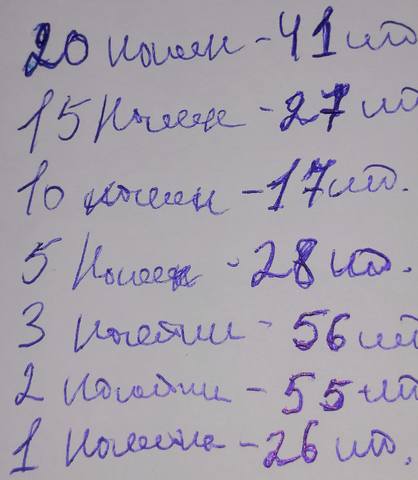 20 копеек - 41 шт
15 копеек - 27 шт
10 копеек - 17 шт.
5 копеек - 28 шт.
3 копейки - 56 шт
2 копейки - 55 шт
1 копейка - 26 шт.